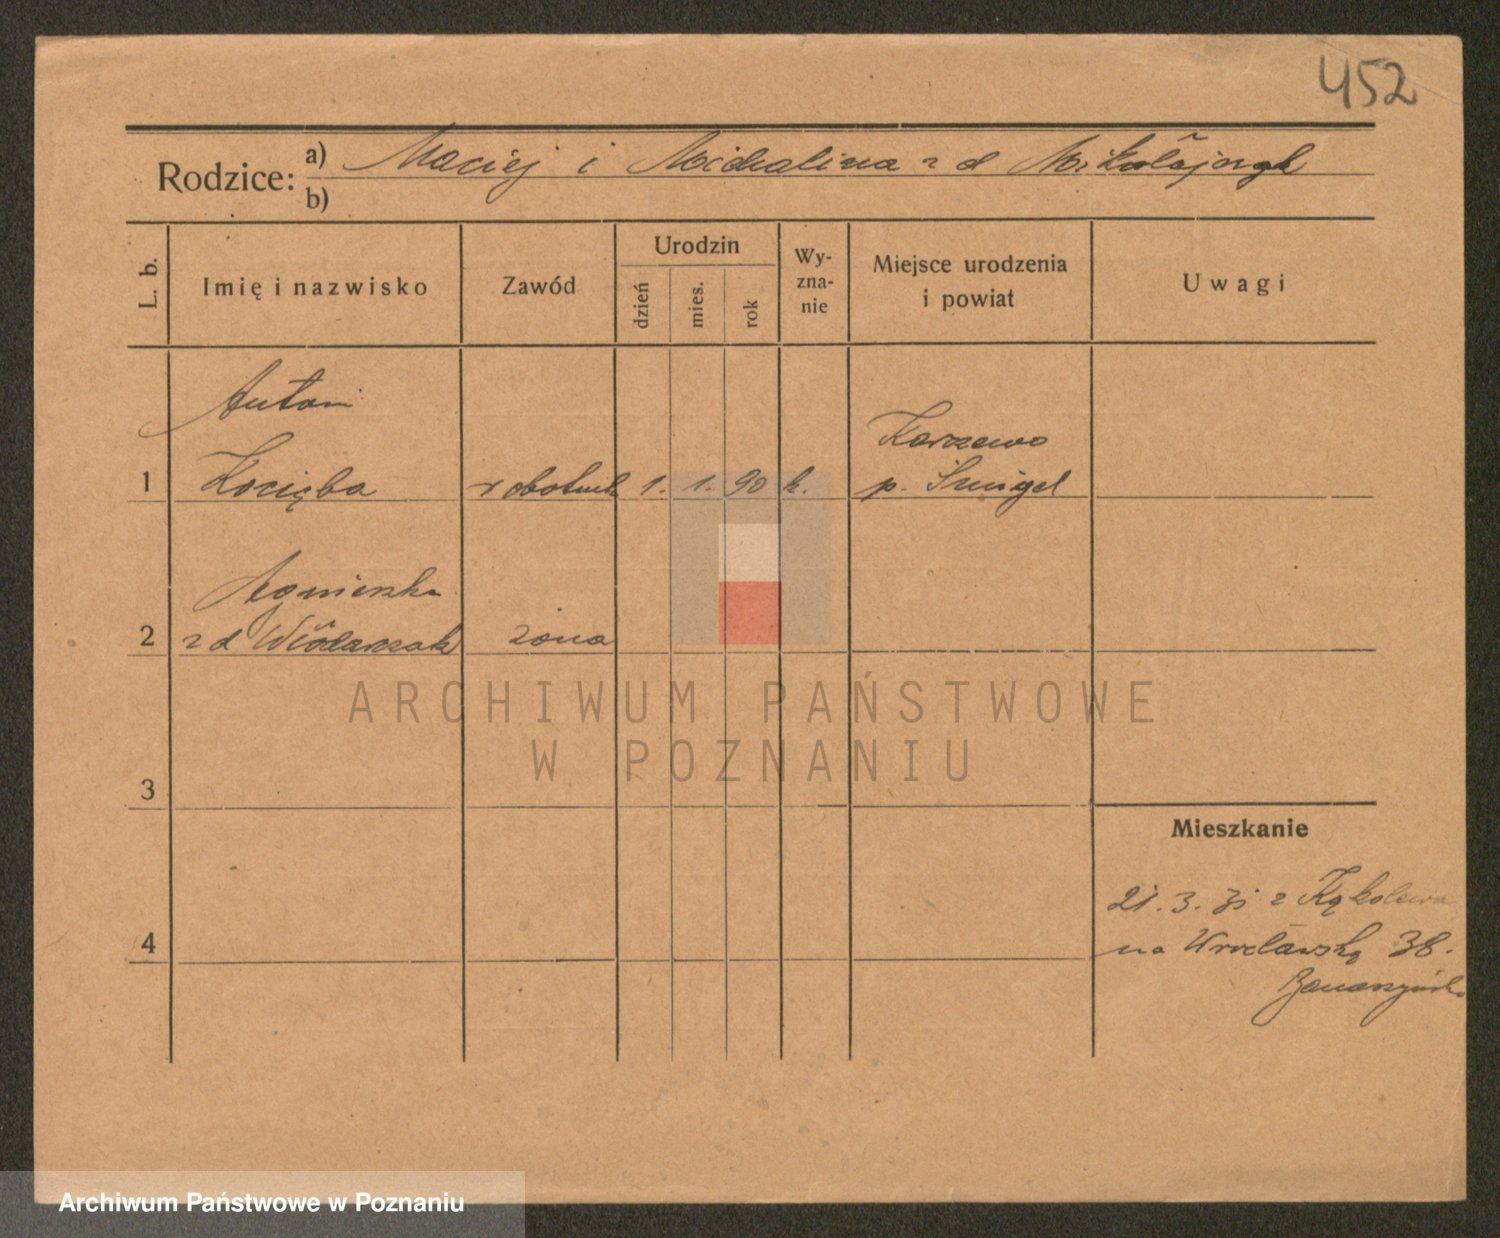 452
Rodzice: a) Maciej i Michalina z d Mikołajczyk
b)
L. b.
Imię i nazwisko
Zawód
Urodzin
dzień
mies.
rok
Wy-
zna-
nie
Miejsce urodzenia
i powiat
Uwagi
Antoni
1 Kocięba robotnik 1. 1. 90 k.
Karszewo
p. Śmigel
Agnieszka
2 z d Włódarczak żona
3
4
Mieszkanie
21. 3. 31 z Kąkolewa
na Wrocławską 38.
ARCHIWUM PAŃSTWOWE
W POZNANIU
Archiwum Państwowe w Poznaniu